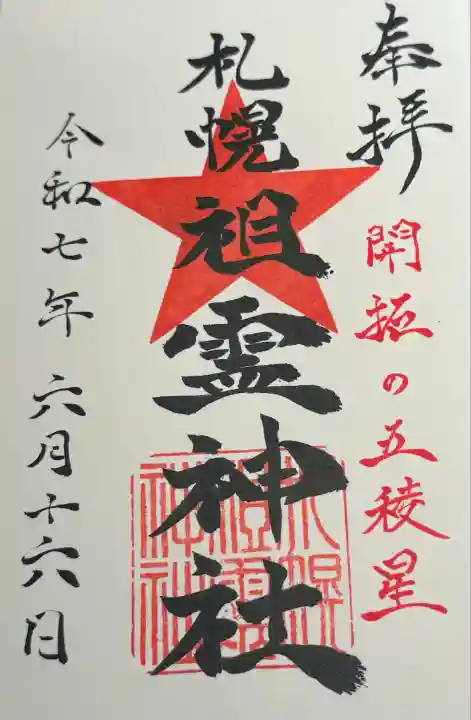 奉拝
開拓の五稜星
札幌祖霊神社
札幌
祖霊
神社
令和七年六月十六日